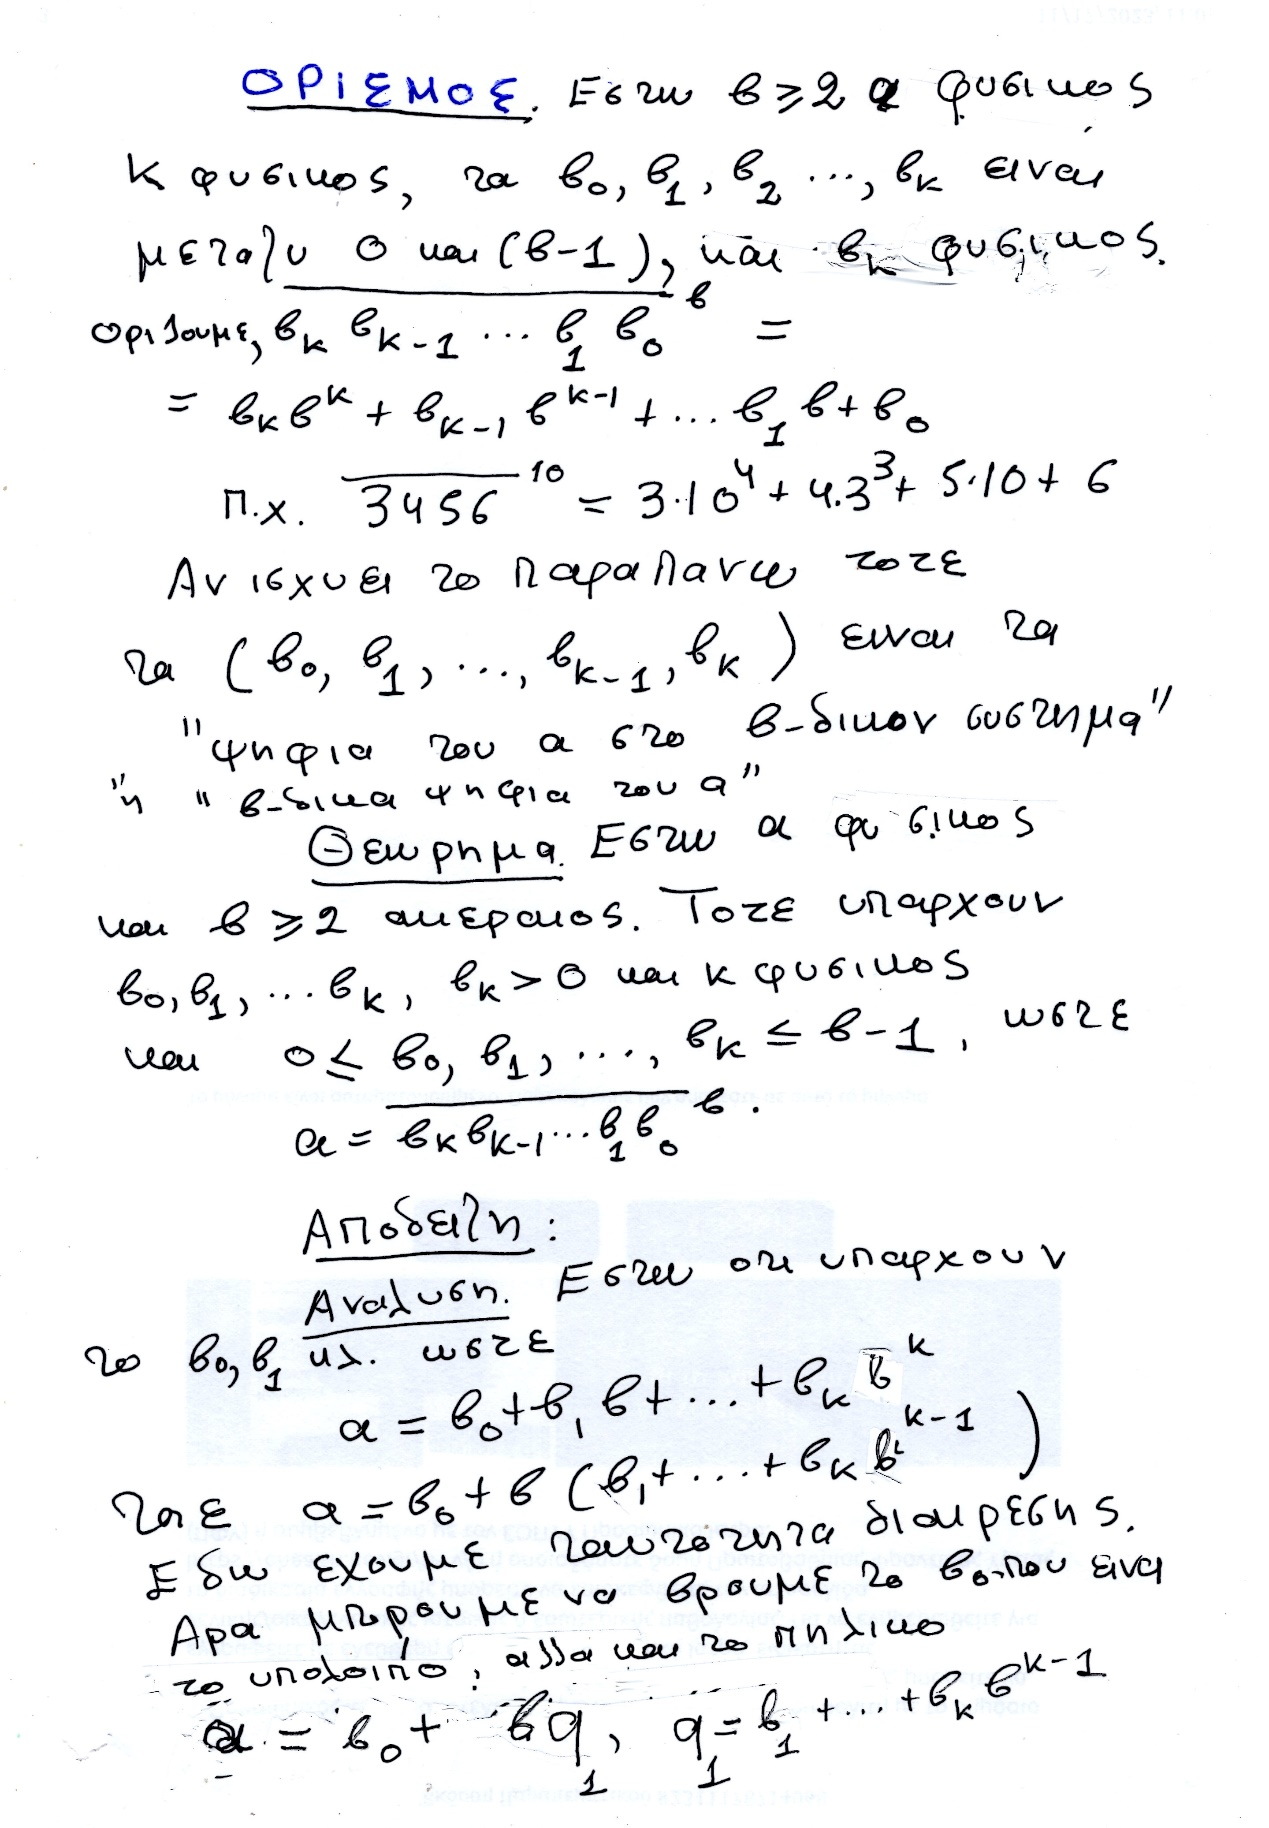 ΟΡΙΣΜΟΣ. Εστω β≥2 α φυσικος
κ φυσικος, τα β₀, β₁, β₂ ..., βₖ ειναι
μεταξυ 0 και (β-1), και βₖ φυσικος.
οριζουμε, \overline{βₖ βₖ₋₁ ... β₁ β₀}^β =
= βₖβ^κ + βₖ₋₁ β^{κ-1} + ... β₁ β + β₀
π.χ. \overline{3456}^{10} = 3·10⁴ + 4.3³ + 5·10 + 6
Αν ισχυει το παραπανω τοτε
τα (β₀, β₁, ..., βₖ₋₁, βₖ) ειναι τα
"ψηφια του α στο β-δικον συστημα"
"η "β-δικα ψηφια του α"
Θεωρημα. Εστω α φυσικος
και β≥2 ακεραιος. Τοτε υπαρχουν
β₀, β₁, ... βₖ, βₖ > 0 και κ φυσικος
και 0 ≤ β₀, β₁, ..., βₖ ≤ β-1, ωστε
α = \overline{βₖβₖ₋₁...β₁β₀}^β.
Αποδειξη:
Αναλυση. Εστω οτι υπαρχουν
το β₀, β₁ κλ. ωστε
α = β₀ + β₁ β + ... + βₖ β^κ
τοτε α = β₀ + β (β₁ + ... + βₖ β^{κ-1})
Εδω εχουμε ταυτοτητα διαιρεσης.
Αρα μπορουμε να βρουμε το β₀ που ειναι
το υπολοιπο, αλλα και το πηλικο
α = β₀ + βq₁, q₁ = β₁ + ... + βₖβ^{κ-1}